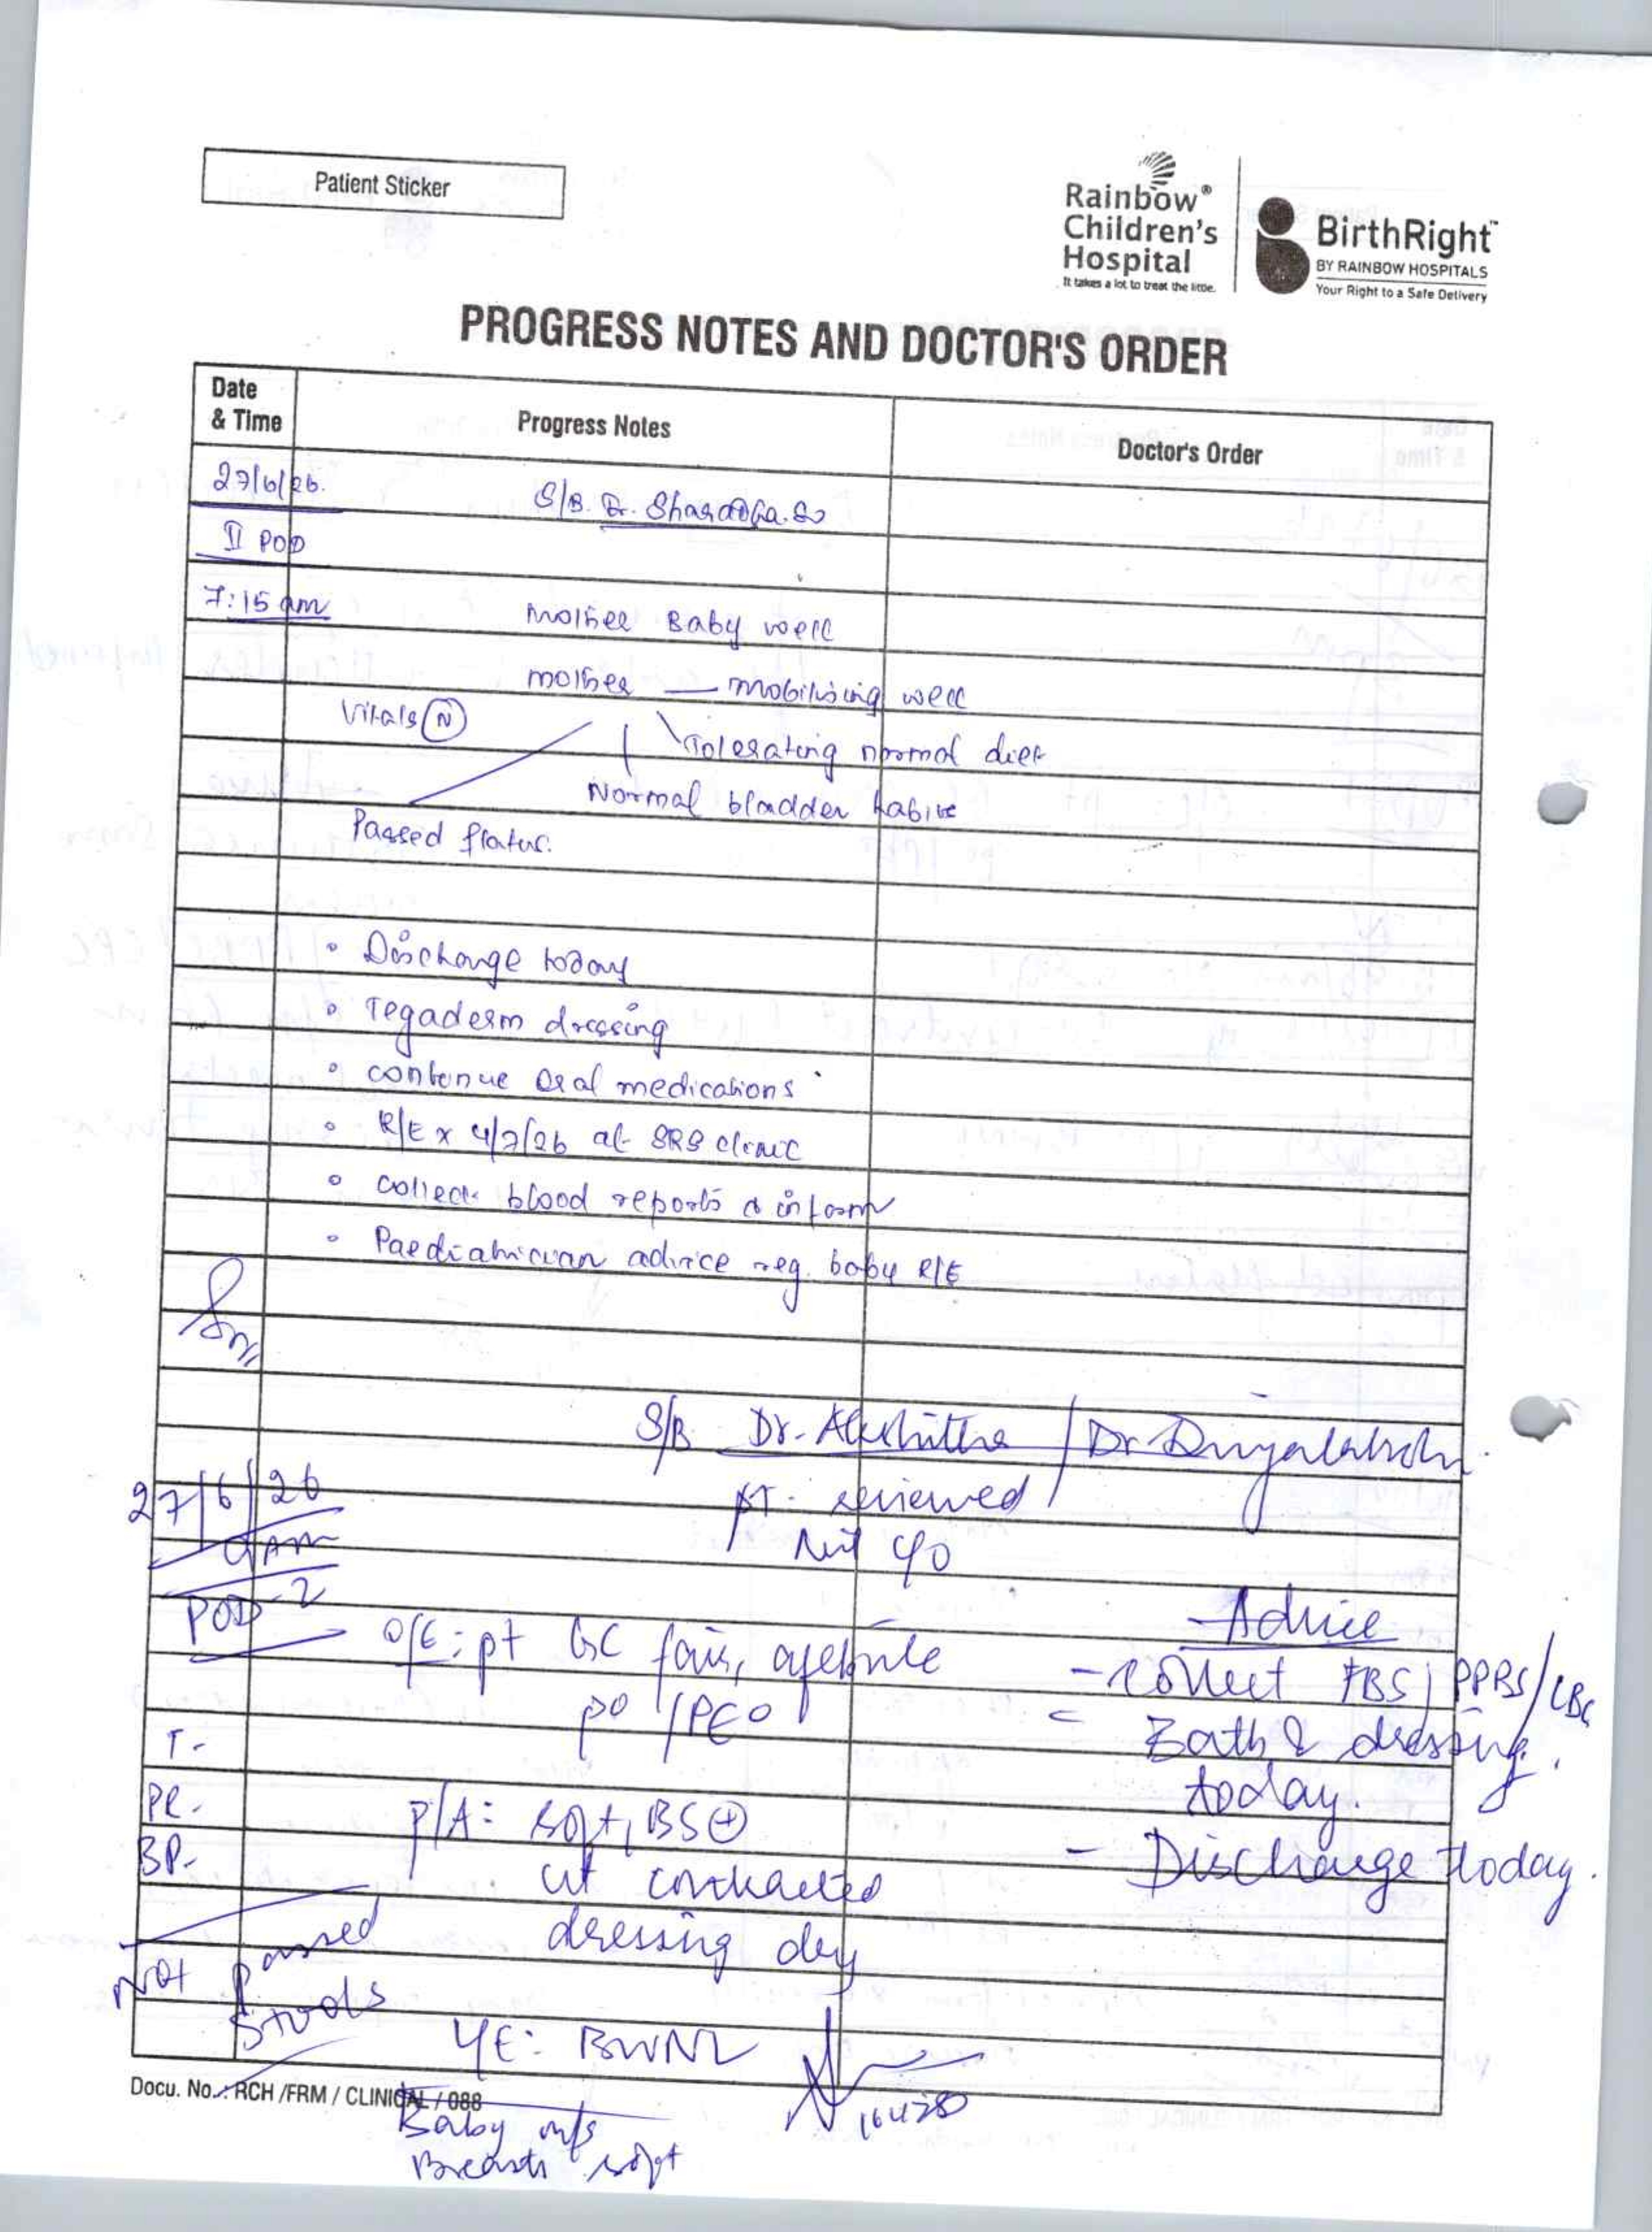 Patient Sticker
Rainbow®
Children's
Hospital
It takes a lot to treat the little.
BirthRight™
BY RAINBOW HOSPITALS
Your Right to a Safe Delivery
PROGRESS NOTES AND DOCTOR'S ORDER
Date
& Time
Progress Notes
Doctor's Order
27/6/26.
S/B. Dr.
II POD
7:15 am
Mother Baby well
mother — mobilising well
Vitals (N)
Tolerating normal diet
Normal bladder habits
Passed flatus.
• Discharge today
• Tegaderm dressing
• continue oral medications
• R/E x 4/7/26 at SRS clinic
• collect blood reports & inform
• Paediatrician advice reg. baby R/E
S/B Dr. / Dr.
27/6/26
9AM
pt. reviewed
Nil c/o
POD-2
Advice
O/E: pt GC fair, afebrile
- Collect FBS/PPBS/CBC
po /PEo
T-
- Bath & dressing
today.
PR-
P/A: soft, BS ⊕
BP-
- Discharge today.
ut contracted
dressing dry
Not passed
stools
L/E: BWNL
Docu. No. : RCH /FRM / CLINICAL / 088
16428
Baby m/s
Breasts soft